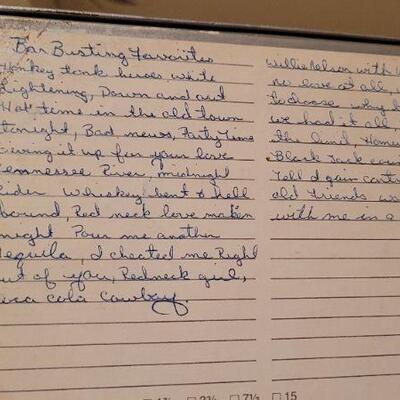 Bar Busting Favorites
Honkey tonk heroes, white
lightening, Down and out
Hot time in the old town
tonight, Bad news, Party Time
Giving it up for your love
Tennessee River, midnight
rider Whiskey bent & hell
bound, Red neck love maken
night Pour me another
tequila, I cheated me Right
out of you, Redneck girl,
coca cola Cowboy.
willie nelson with
no love at all,
to choose why
we had it all,
the lind
Black Jack
Tell I gain
old friends
with me in a
15